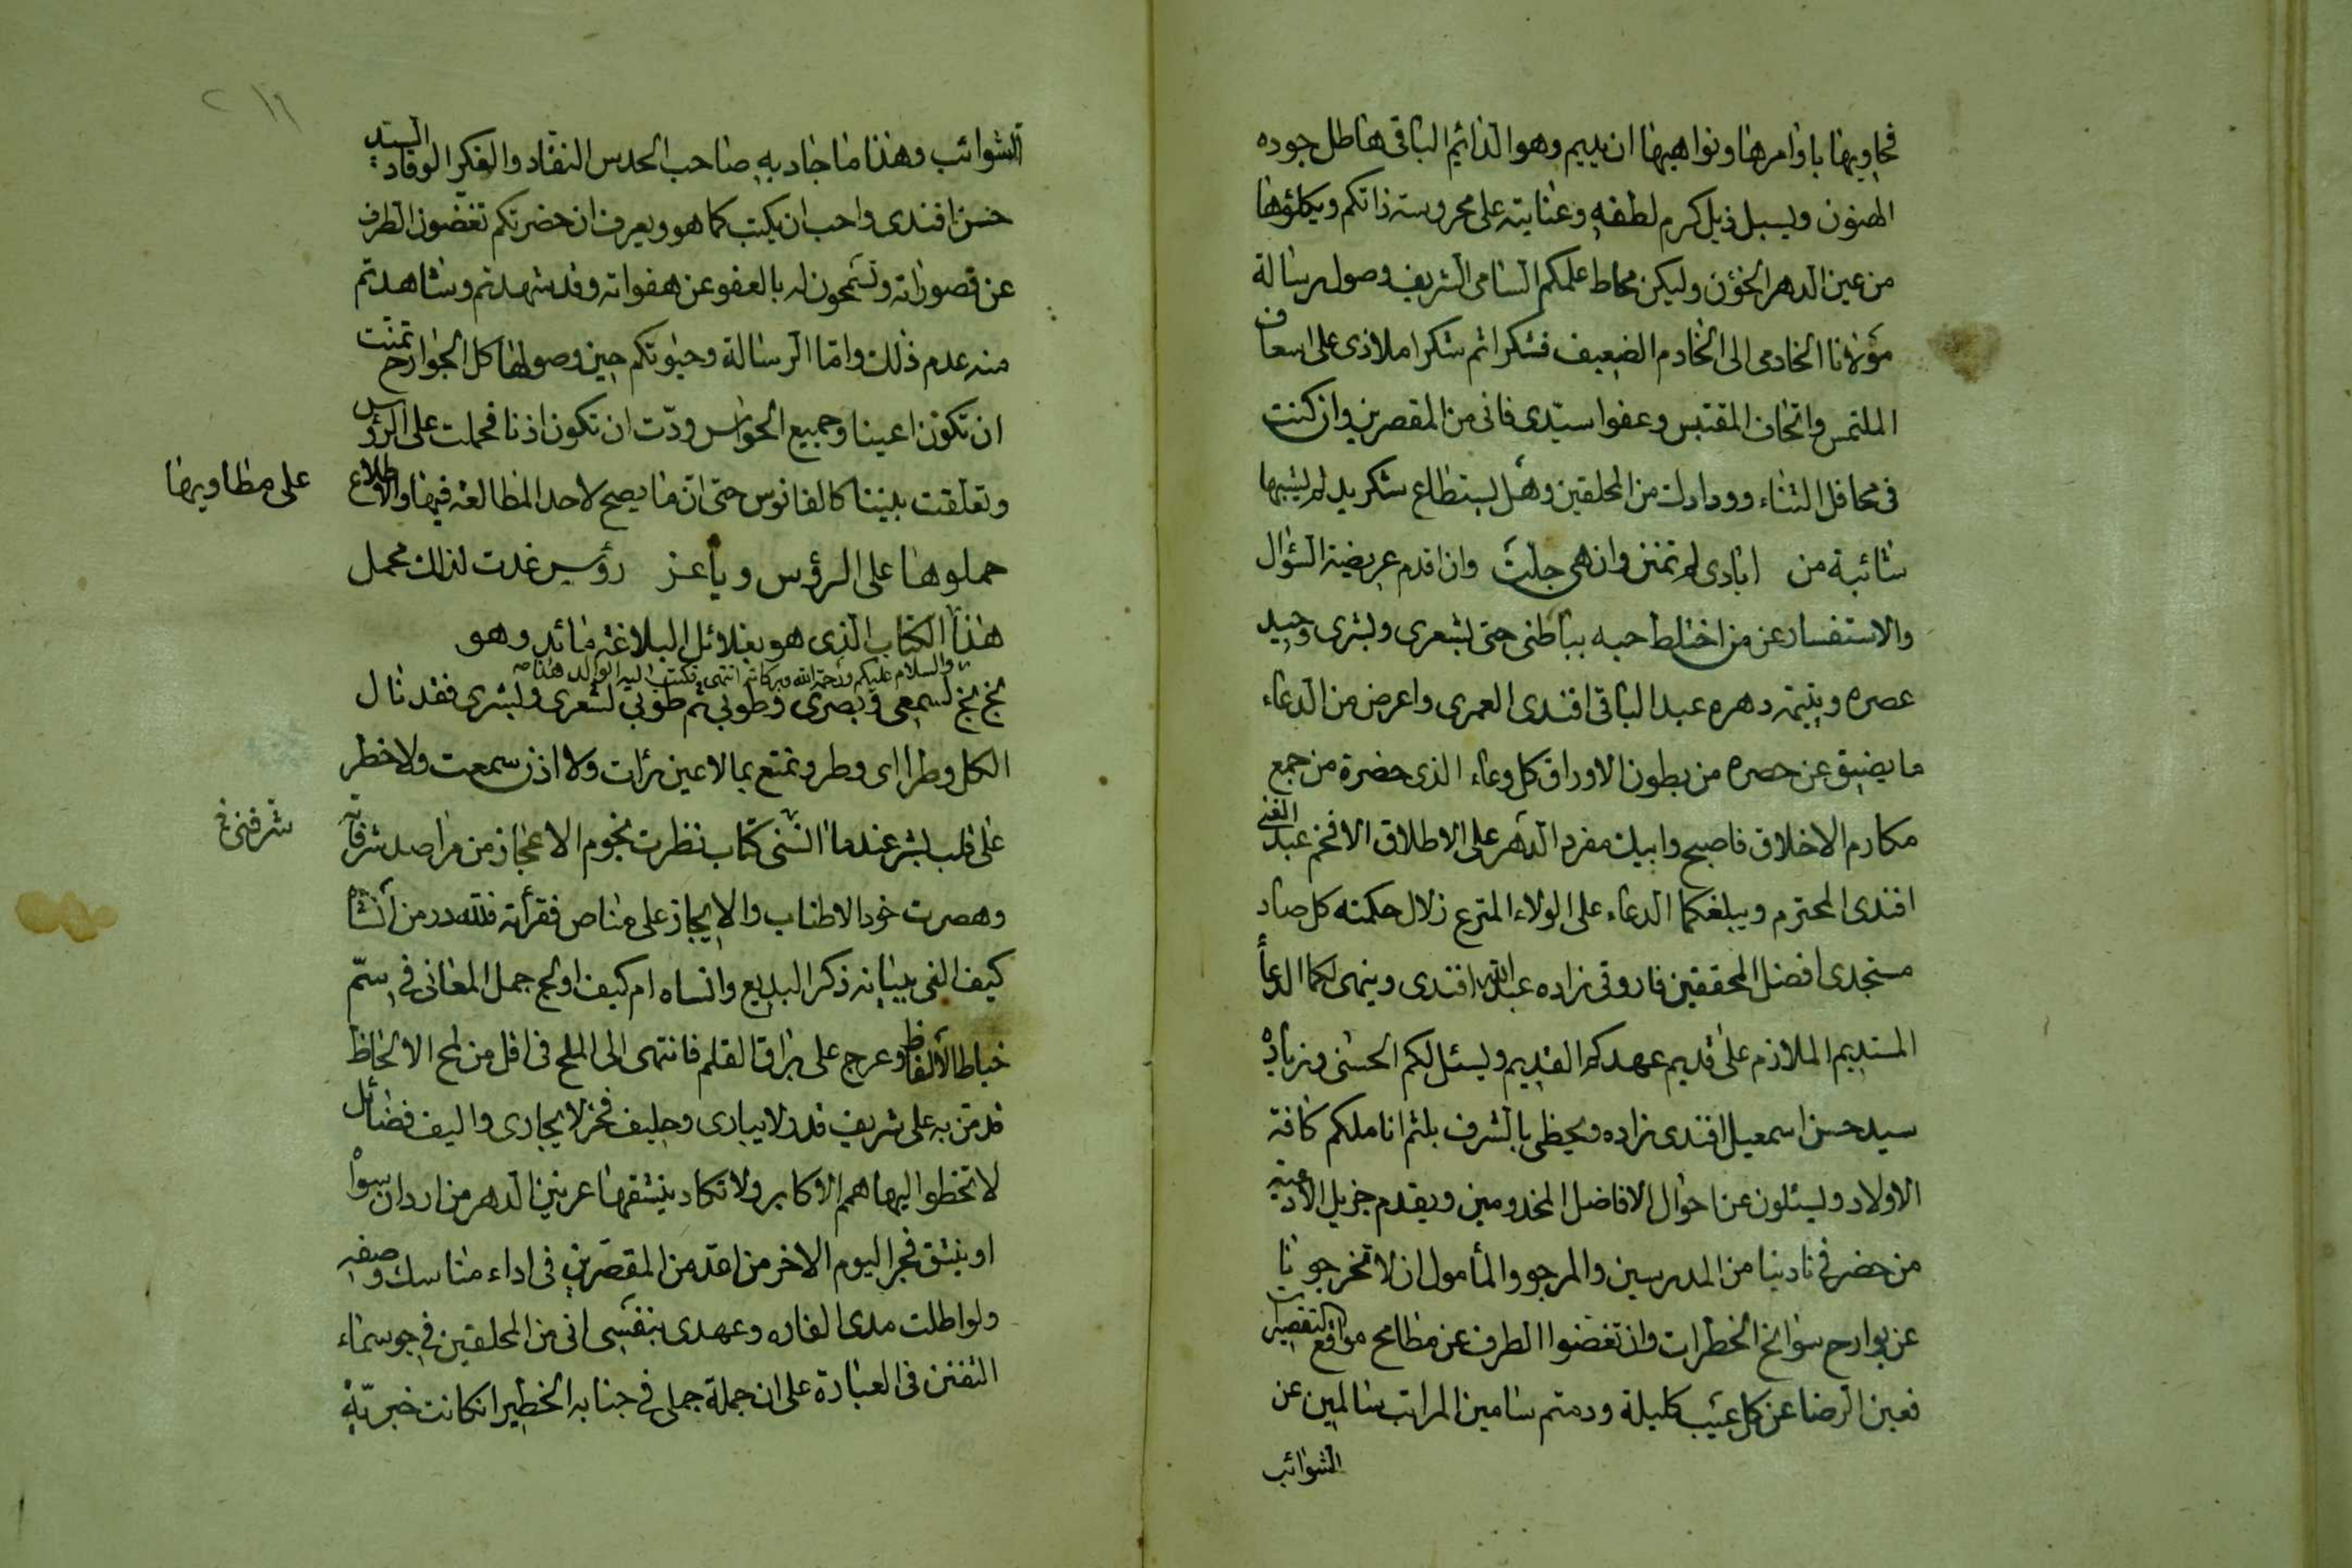 فحاويها باوامرها ونواهيها ان يديم وهو الدائم الباقى هاطل جوده
الهتون ويسبل ذيل كرم لطفه وعنايته على محروسة ذاتكم ويكلؤها
من عين الدهر الخؤن وليكن محاط علمكم السامى الشريف وصول رسالة
مولانا الخادمى الى الخادم الضعيف فشكرا ثم شكرا ملاذى على اسعاف
الملتمس واتحاف المقتبس وعفوا سيدى فانى من المقصرين وان كنت
فى محافل الثناء وودادك من المحلقين وهل يستطاع شكر يد لم يشبها
شائبة من ايادى لم تمنن وان هى جلت وان اقدم عريضة السؤال
والاستفسار عن من اختلط حبه بباطنى حتى بشعرى وبشرى وحيد
عصره ويتيمة دهره عبد الباقى افندى العمرى واعرض من الدعاء
ما يضيق عن حصره من بطون الاوراق كل وعاء الذى حضرة من جمع
مكارم الاخلاق فاصبح وابيك مفرد الدهر على الاطلاق الافخم عبد الغنى
افندى المحترم ويبلغكما الدعاء على الولاء المترع زلال حكمته كل صاد
مستجدى افضل المحققين فاروقى زاده عبد الله افندى وينهى لكما الدعأ
المستديم الملازم على قديم عهدكم القديم ويسئل لكم الحسنى وزياده
سيد حسن اسمعيل افندى زاده ويحظى بالشرف بلثم اناملكم كافة
الاولاد ويسئلون عن احوال الافاضل المخدومين ويقدم جزيل الادعية
من حضر فى نادينا من المدرسين والمرجو والمأمول ان لا تخرجونا
عن بوارح سوانح الخطرات وان تغضوا الطرف عن مطامح مواقع التقصيرات
فعين الرضا عن كل عيب كليلة ودمتم سامين المراتب سالمين عن
الشوائب
الشوائب وهذا ما جاد به صاحب الحدس النقاد والفكر الوقاد السيد
حسن افندى واحب ان يكتب كما هو ويعرف ان حضرتكم تغضون الطرف
عن قصوراته وتسمحون له بالعفو عن هفواته وقد شهدتم وشاهدتم
منه عدم ذلك واما الرسالة وحبوتكم حين وصولها كل الجوارح تمنت
ان تكون اعينا وجميع الحواس ودت ان تكون اذنا فحملت على الرؤس
وتعلقت بيننا كالفانوس حتى ان ما يصح لاحد المطالعة فيها والاطلاع
على مطاويها
حملوها على الرؤس ويا عز رؤس غدت لذلك محمل
هذا الكتاب الذى هو بغلائل البلاغة مائد وهو
والسلام عليكم ورحمة الله وبركاته انتهى فكتب اليه الوالد هذا
بخ بخ لسمعى وبصرى وطوبى ثم طوبى لشعرى ولبشرى فقد نال
الكل وطرا اى وطر وتمتع بما لا عين رأت ولا اذن سمعت ولا خطر
على قلب بشر عندما شرفنى كتاب نظرت نجوم الاعجاز من مراصد شرفاته
شرفنى
وهصرت خود الاطناب والايجاز على مناص فقرأته فلله در من انشأه
كيف الفى ببيانه ذكر البديع وانساه ام كيف اولج جمل المعانى فى سم
خياط الالفاظ وعرج على براق القلم فانتهى الى الملح فى اقل من لمح الالحاظ
قد من به على شريف قدر لا يبارى وحليف فخر لا يجارى واليف فضائل
لا تخطوا اليها همم الاكابر ولا تكاد ينشقها عرنين الدهر من اردان سواه
او ينشق فجر اليوم الاخر من اعد من المقصرين فى اداء مناسك وصفه
ولو اطلت مدى الفاره وعهدى بنفسى انى من المحلقين فى جو سماء
التفنن فى العبارة على ان جملة جملى فى جنابه الخطير ان كانت خبرية